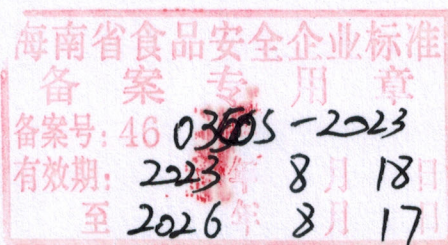 海南省食品安全企业标准
备案专用章
备案号: 46 -2023
有效期: 2023年8月18日
至2026年8月17日